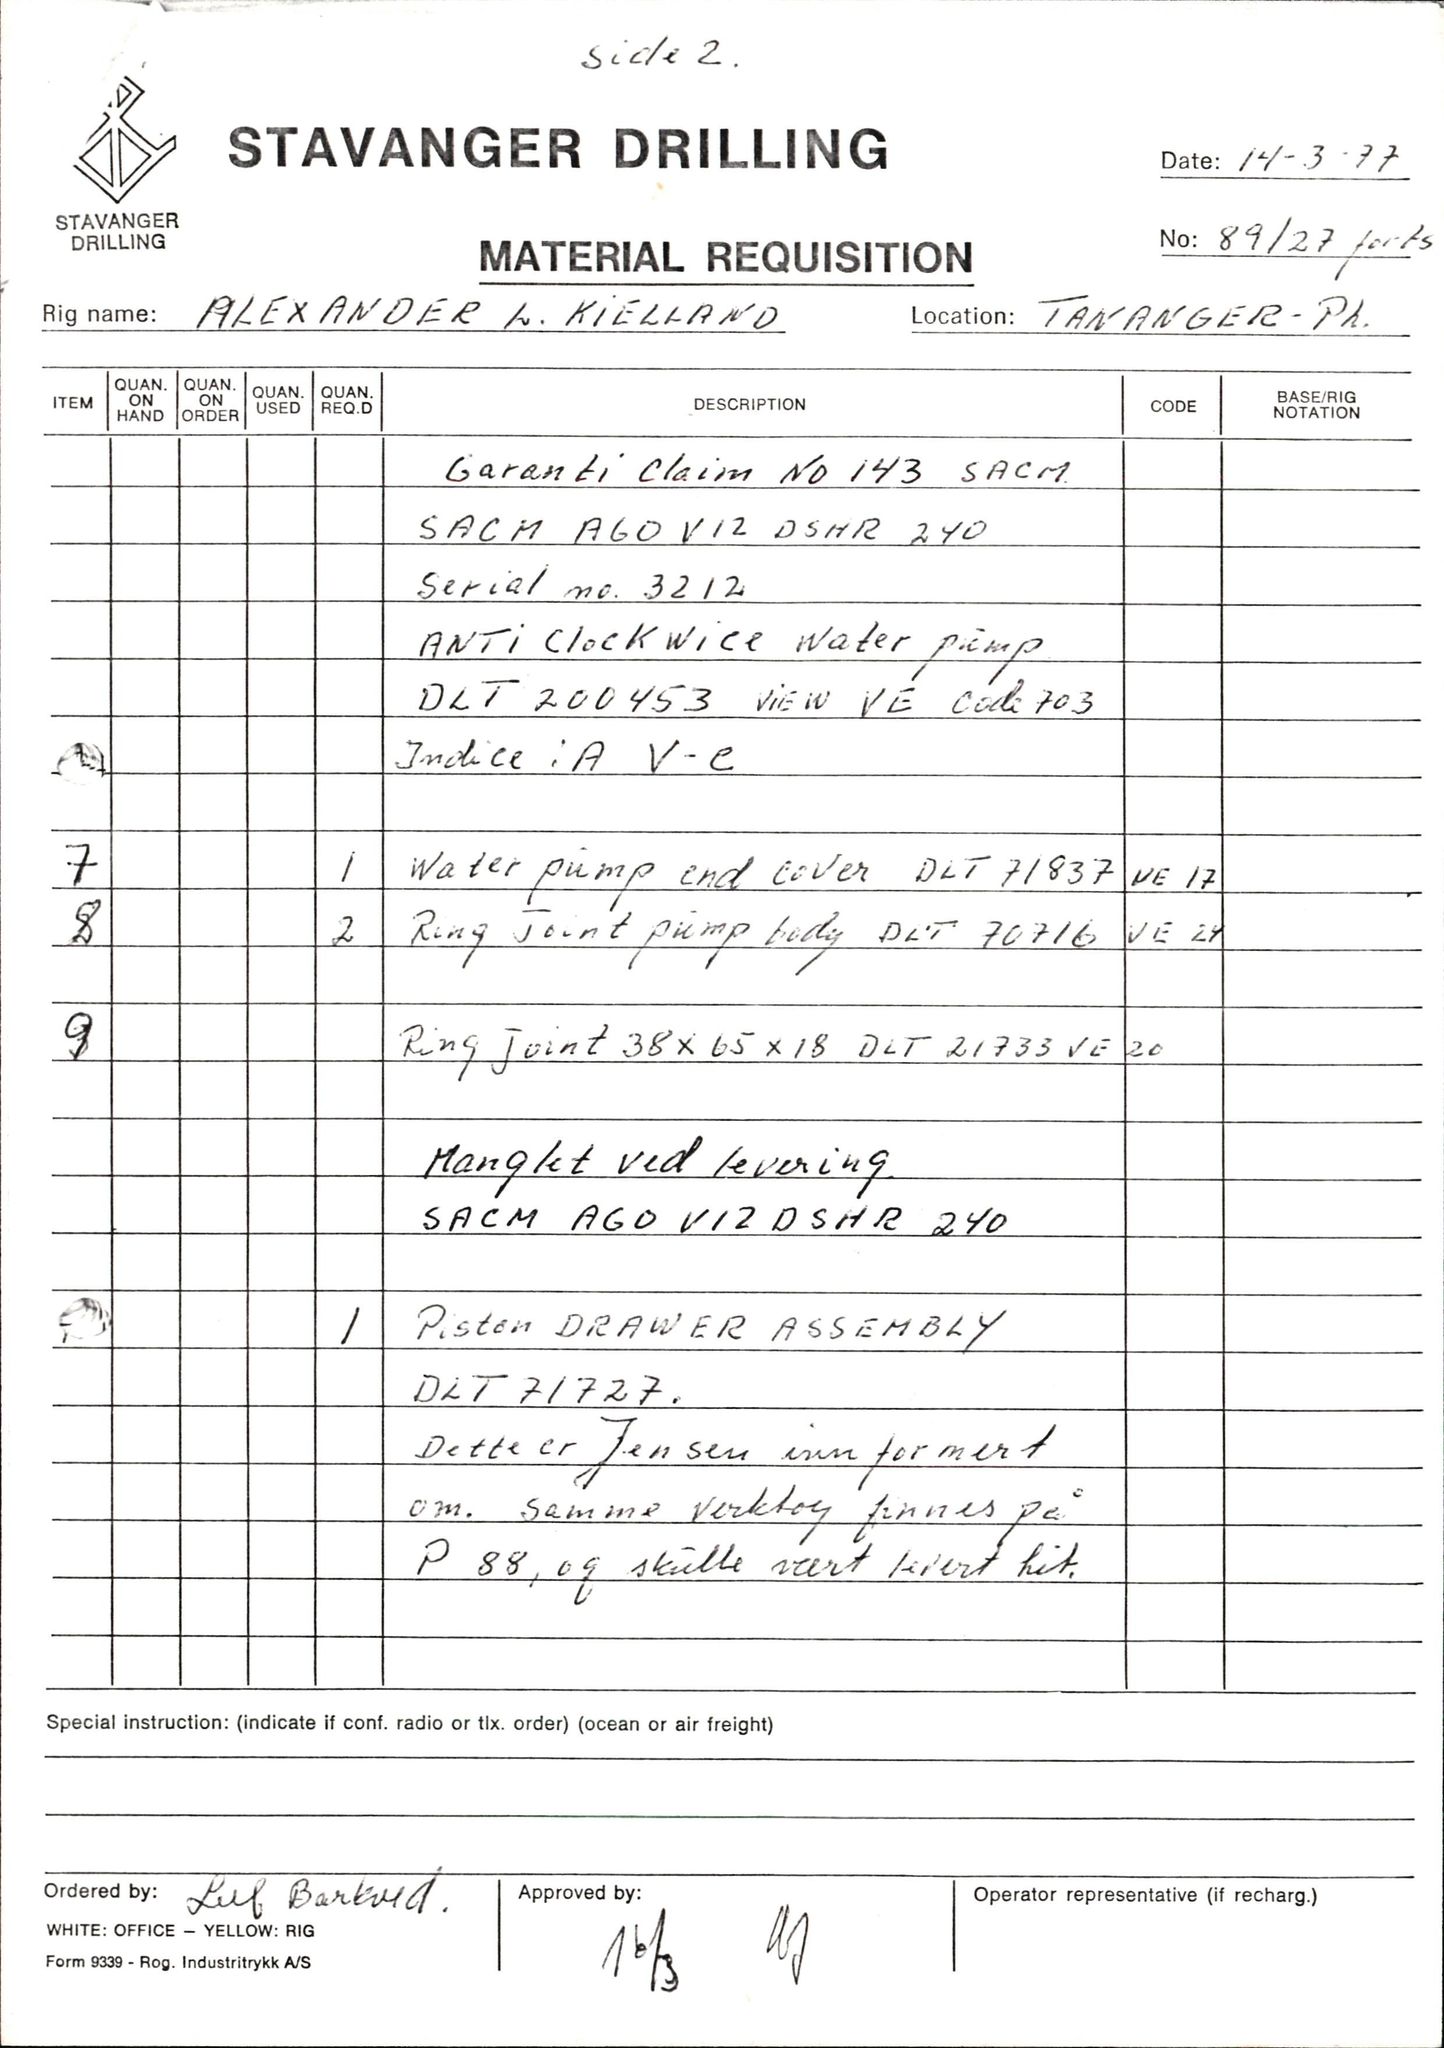 side 2.
STAVANGER DRILLING
STAVANGER
DRILLING
Date: 14-3-77
MATERIAL REQUISITION
No: 89/27 forts
Rig name: ALEXANDER L. KIELLAND Location: TANANGER - Ph.
ITEM QUAN. ON HAND QUAN. ON ORDER QUAN. USED QUAN. REQ.D DESCRIPTION CODE BASE/RIG NOTATION
Garanti Claim NO 143 SACM.
SACM AGO V12 DSHR 240
Serial no. 3212
ANTi ClockWice Water pump
DLT 200453 ViEW VE Code 703
Indice : A V-e
7 1 Water pump end cover DLT 71837 VE 17
8 2 Ring Joint pump body DLT 70716 VE 24
9 Ring Joint 38 x 65 x 18 DLT 21733 VE 20
Manglet ved levering
SACM AGO V12 DSHR 240
1 Piston DRAWER ASSEMBLY
DLT 71727.
Dette er Jensen innformert
om. Samme verktøy finnes på
P 88, og skulle vært levert hit.
Special instruction: (indicate if conf. radio or tlx. order) (ocean or air freight)
Ordered by: Leif Barkved. Approved by: Operator representative (if recharg.)
WHITE: OFFICE – YELLOW: RIG
16/3
Form 9339 - Rog. Industritrykk A/S